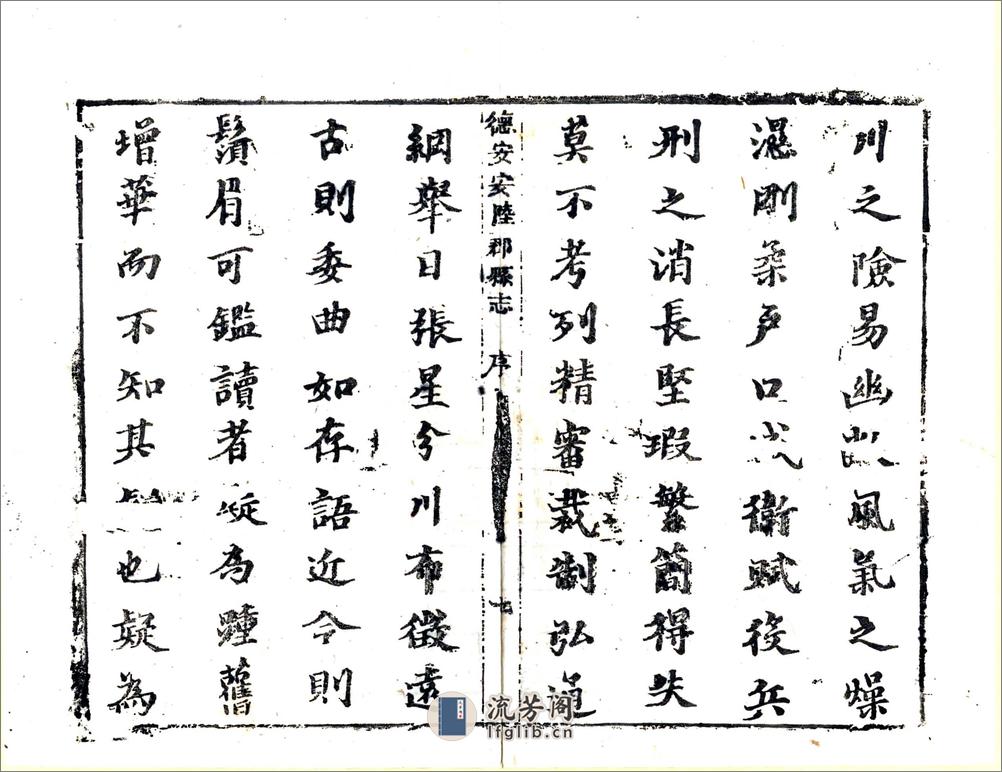 川之險易幽風氣之燥
濕剛柔戶口衛賦役兵
刑之消長堅瑕繁簡得失
莫不考列精審裁制弘通
德安安陸郡縣志 序 七
綱舉日張星分川布徵遠
古則委曲如存語近今則
鬚眉可鑑讀者為踵舊
增華而不知其也疑為
流芳阁
lfglib.cn